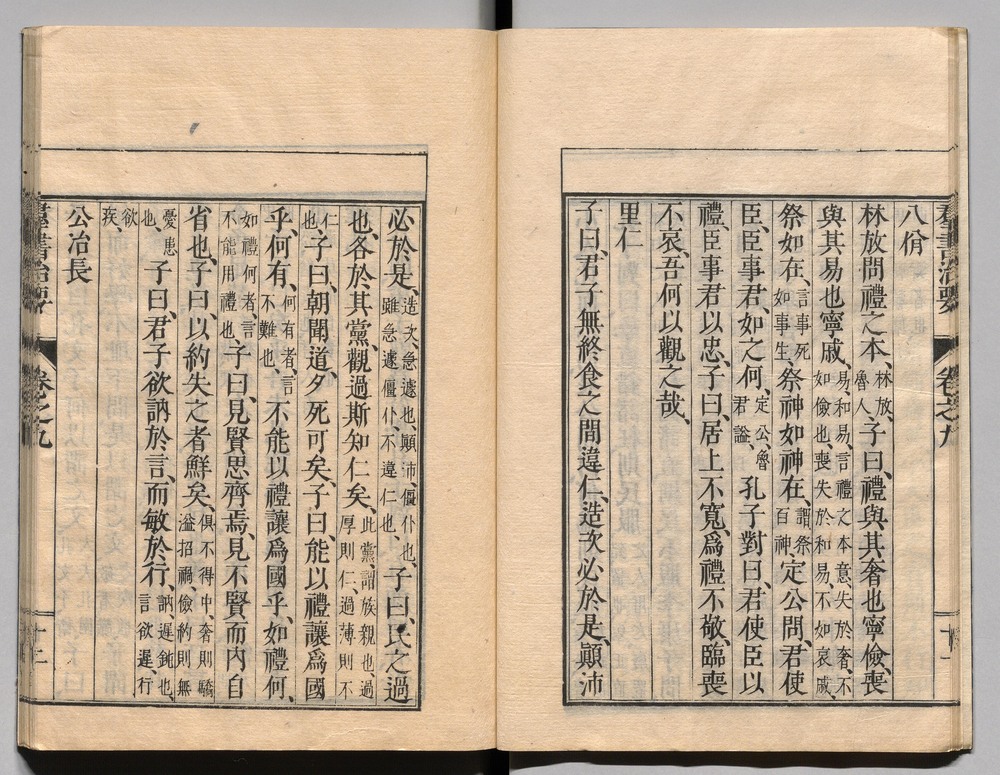 群書治要 卷之九 十一
八佾
林放問禮之本、林放、魯人、子曰、禮與其奢也寧儉、喪
與其易也寧戚、易、和易、言禮之本意、失於奢、不如儉也喪失於和易、不如哀戚、
祭如在、言事死如事生、祭神如神在、謂祭百神、定公問、君使
臣、臣事君、如之何、定公、魯君謚、孔子對曰、君使臣以
禮、臣事君以忠、子曰、居上不寬、爲禮不敬、臨喪
不哀、吾何以觀之哉、
里仁
子曰、君子無終食之間違仁、造次必於是、顚沛
必於是、造次、急遽也、顚沛、偃仆也、雖急遽偃仆、不違仁也、子曰、民之過
也、各於其黨、觀過斯知仁矣、此黨、謂族親也、過厚則仁、過薄則不
仁也、子曰、朝聞道、夕死可矣、子曰、能以禮讓爲國
乎、何有、何有者、言不難也、不能以禮讓爲國乎、如禮何、
如禮何者、言不能用禮也、子曰、見賢思齊焉、見不賢而內自
省也、子曰、以約失之者鮮矣、俱不得中、奢則驕溢招禍、儉約則無
憂患也、子曰、君子欲訥於言、而敏於行、訥、遲鈍也、言欲遲、行
欲疾、
公冶長
群書治要 卷之九 十二